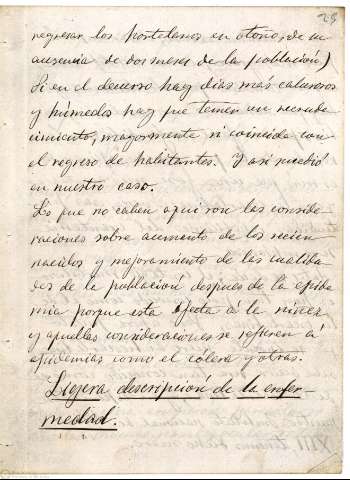 25
regresar los forteleños en otoño, de su
ausencia de dos meses de la población)
Si en el decurso hay dias más calurosos
y húmedos hay que temer un recrude
cimiento, mayormente si coincide con
el regreso de habitantes. Y asi sucedió
en nuestro caso.
Lo que no caben aqui son las conside
raciones sobre aumento de los recien
nacidos y mejoramiento de las cualida
des de la población despues de la epide
mia porque esta afecta á la niñez
y aquellas consideraciones se refieren á
epidemias como el colera y otras.
Ligera descripcion de la enfer-
medad.